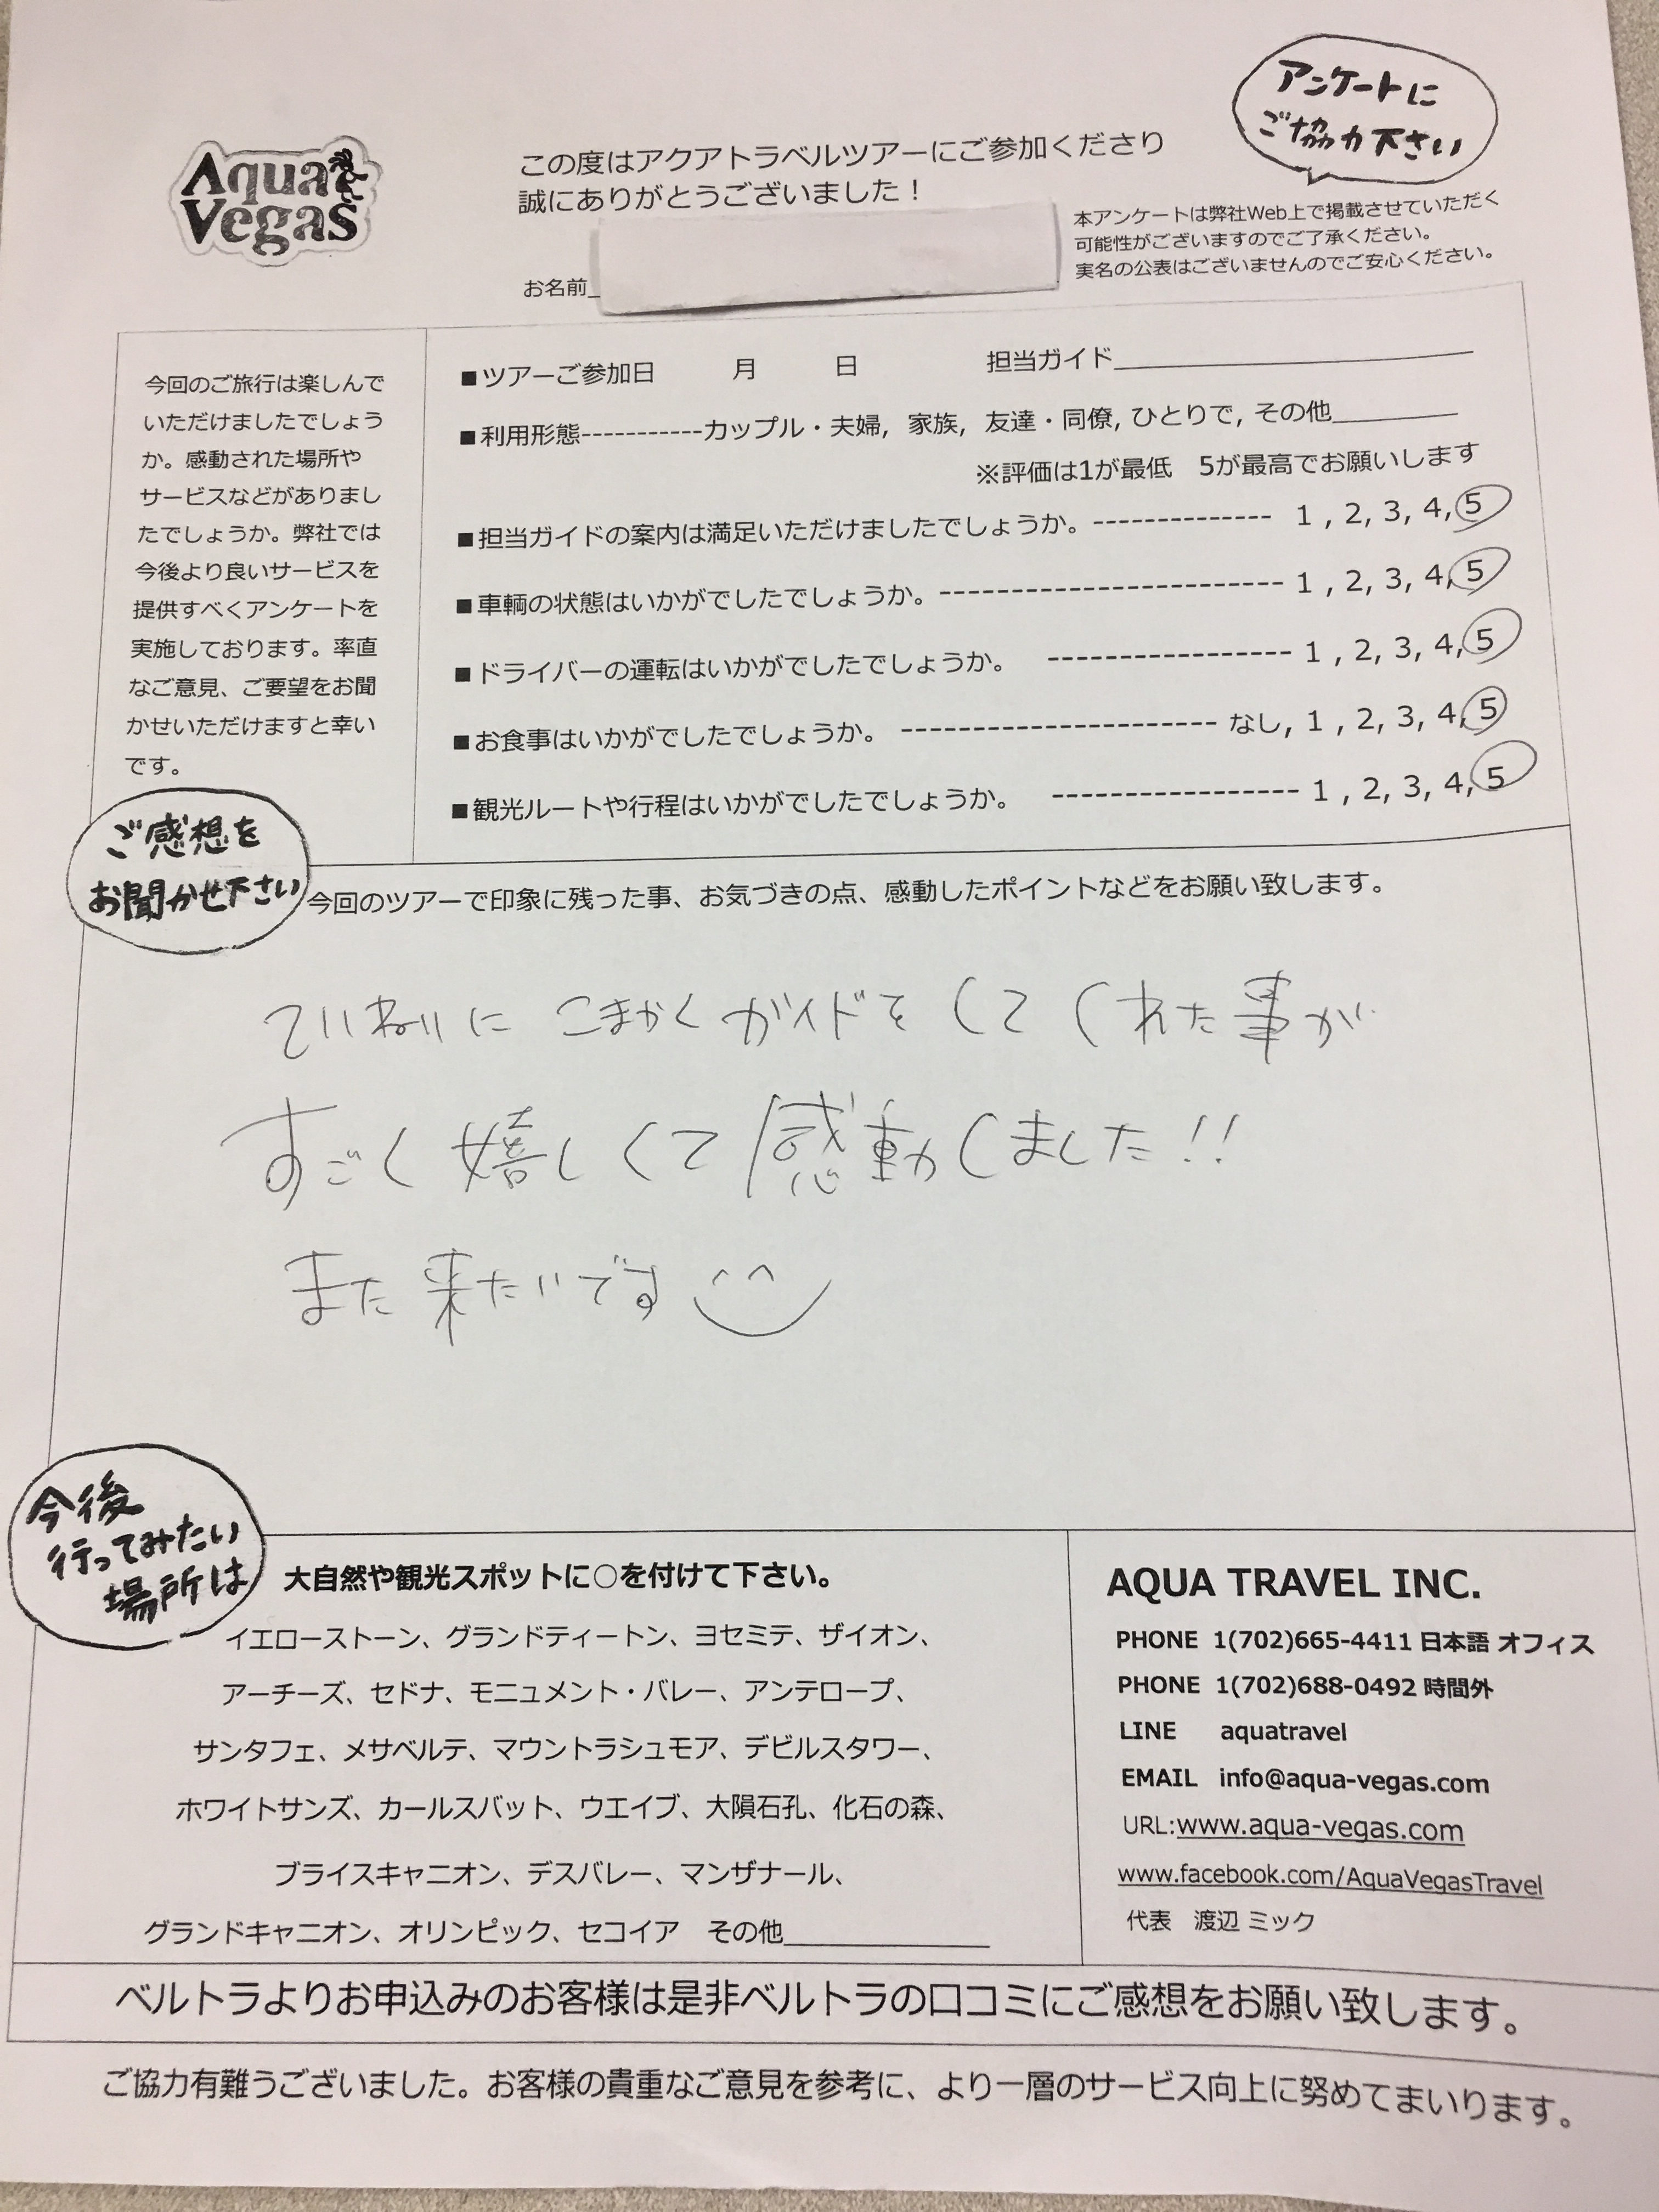 Aqua
Vegas
この度はアクアトラベルツアーにご参加くださり
誠にありがとうございました！
アンケートに
ご協力下さい
お名前_
本アンケートは弊社Web上で掲載させていただく
可能性がございますのでご了承ください。
実名の公表はございませんのでご安心ください。
今回のご旅行は楽しんで
いただけましたでしょう
か。感動された場所や
サービスなどがありまし
たでしょうか。弊社では
今後より良いサービスを
提供すべくアンケートを
実施しております。率直
なご意見、ご要望をお聞
かせいただけますと幸い
です。
■ツアーご参加日　　　月　　　日　　　　　担当ガイド____________________
■利用形態-----------カップル・夫婦, 家族, 友達・同僚, ひとりで, その他_______
※評価は1が最低　5が最高でお願いします
■担当ガイドの案内は満足いただけましたでしょうか。-------------- 1 , 2, 3, 4, 5
■車輌の状態はいかがでしたでしょうか。--------------------------- 1 , 2, 3, 4, 5
■ドライバーの運転はいかがでしたでしょうか。 ------------------- 1 , 2, 3, 4, 5
■お食事はいかがでしたでしょうか。 ------------------------- なし, 1 , 2, 3, 4, 5
■観光ルートや行程はいかがでしたでしょうか。 ------------------- 1 , 2, 3, 4, 5
ご感想を
お聞かせ下さい
今回のツアーで印象に残った事、お気づきの点、感動したポイントなどをお願い致します。
ていねいに こまかく ガイドを してくれた事が
すごく 嬉しくて 感動しました!!
また 来たいです
今後
行ってみたい
場所は
大自然や観光スポットに○を付けて下さい。
イエローストーン、グランドティートン、ヨセミテ、ザイオン、
アーチーズ、セドナ、モニュメント・バレー、アンテロープ、
サンタフェ、メサベルテ、マウントラシュモア、デビルスタワー、
ホワイトサンズ、カールスバット、ウエイブ、大隕石孔、化石の森、
ブライスキャニオン、デスバレー、マンザナール、
グランドキャニオン、オリンピック、セコイア　その他______________
AQUA TRAVEL INC.
PHONE 1(702)665-4411 日本語 オフィス
PHONE 1(702)688-0492 時間外
LINE aquatravel
EMAIL info@aqua-vegas.com
URL:www.aqua-vegas.com
www.facebook.com/AquaVegasTravel
代表　渡辺 ミック
ベルトラよりお申込みのお客様は是非ベルトラの口コミにご感想をお願い致します。
ご協力有難うございました。お客様の貴重なご意見を参考に、より一層のサービス向上に努めてまいります。